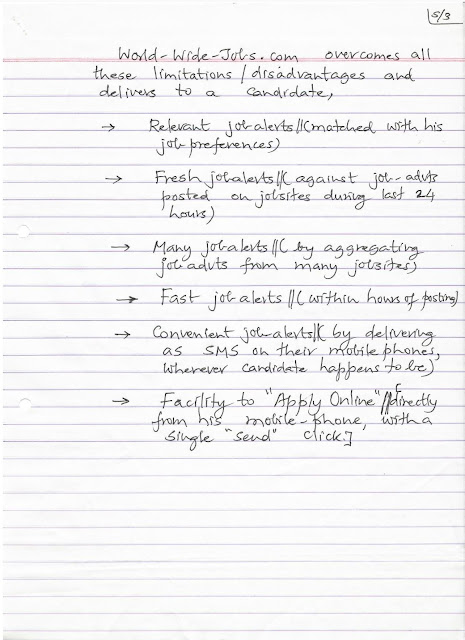 5/3
World-Wide-Jobs.com overcomes all
these limitations/disadvantages and
delivers to a candidate,
→ Relevant job-alerts//(matched with his
job-preferences)
→ Fresh jobalerts//(against job-advts
posted on jobsites during last 24
hours)
→ Many jobalerts//(by aggregating
job advts from many jobsites)
→ Fast job alerts//(within hours of posting)
→ Convenient job-alerts//(by delivering
as SMS on their mobile phones,
wherever candidate happens to be)
→ Facility to "Apply Online"//[directly
from his mobile-phone, with a
single "send" click.]